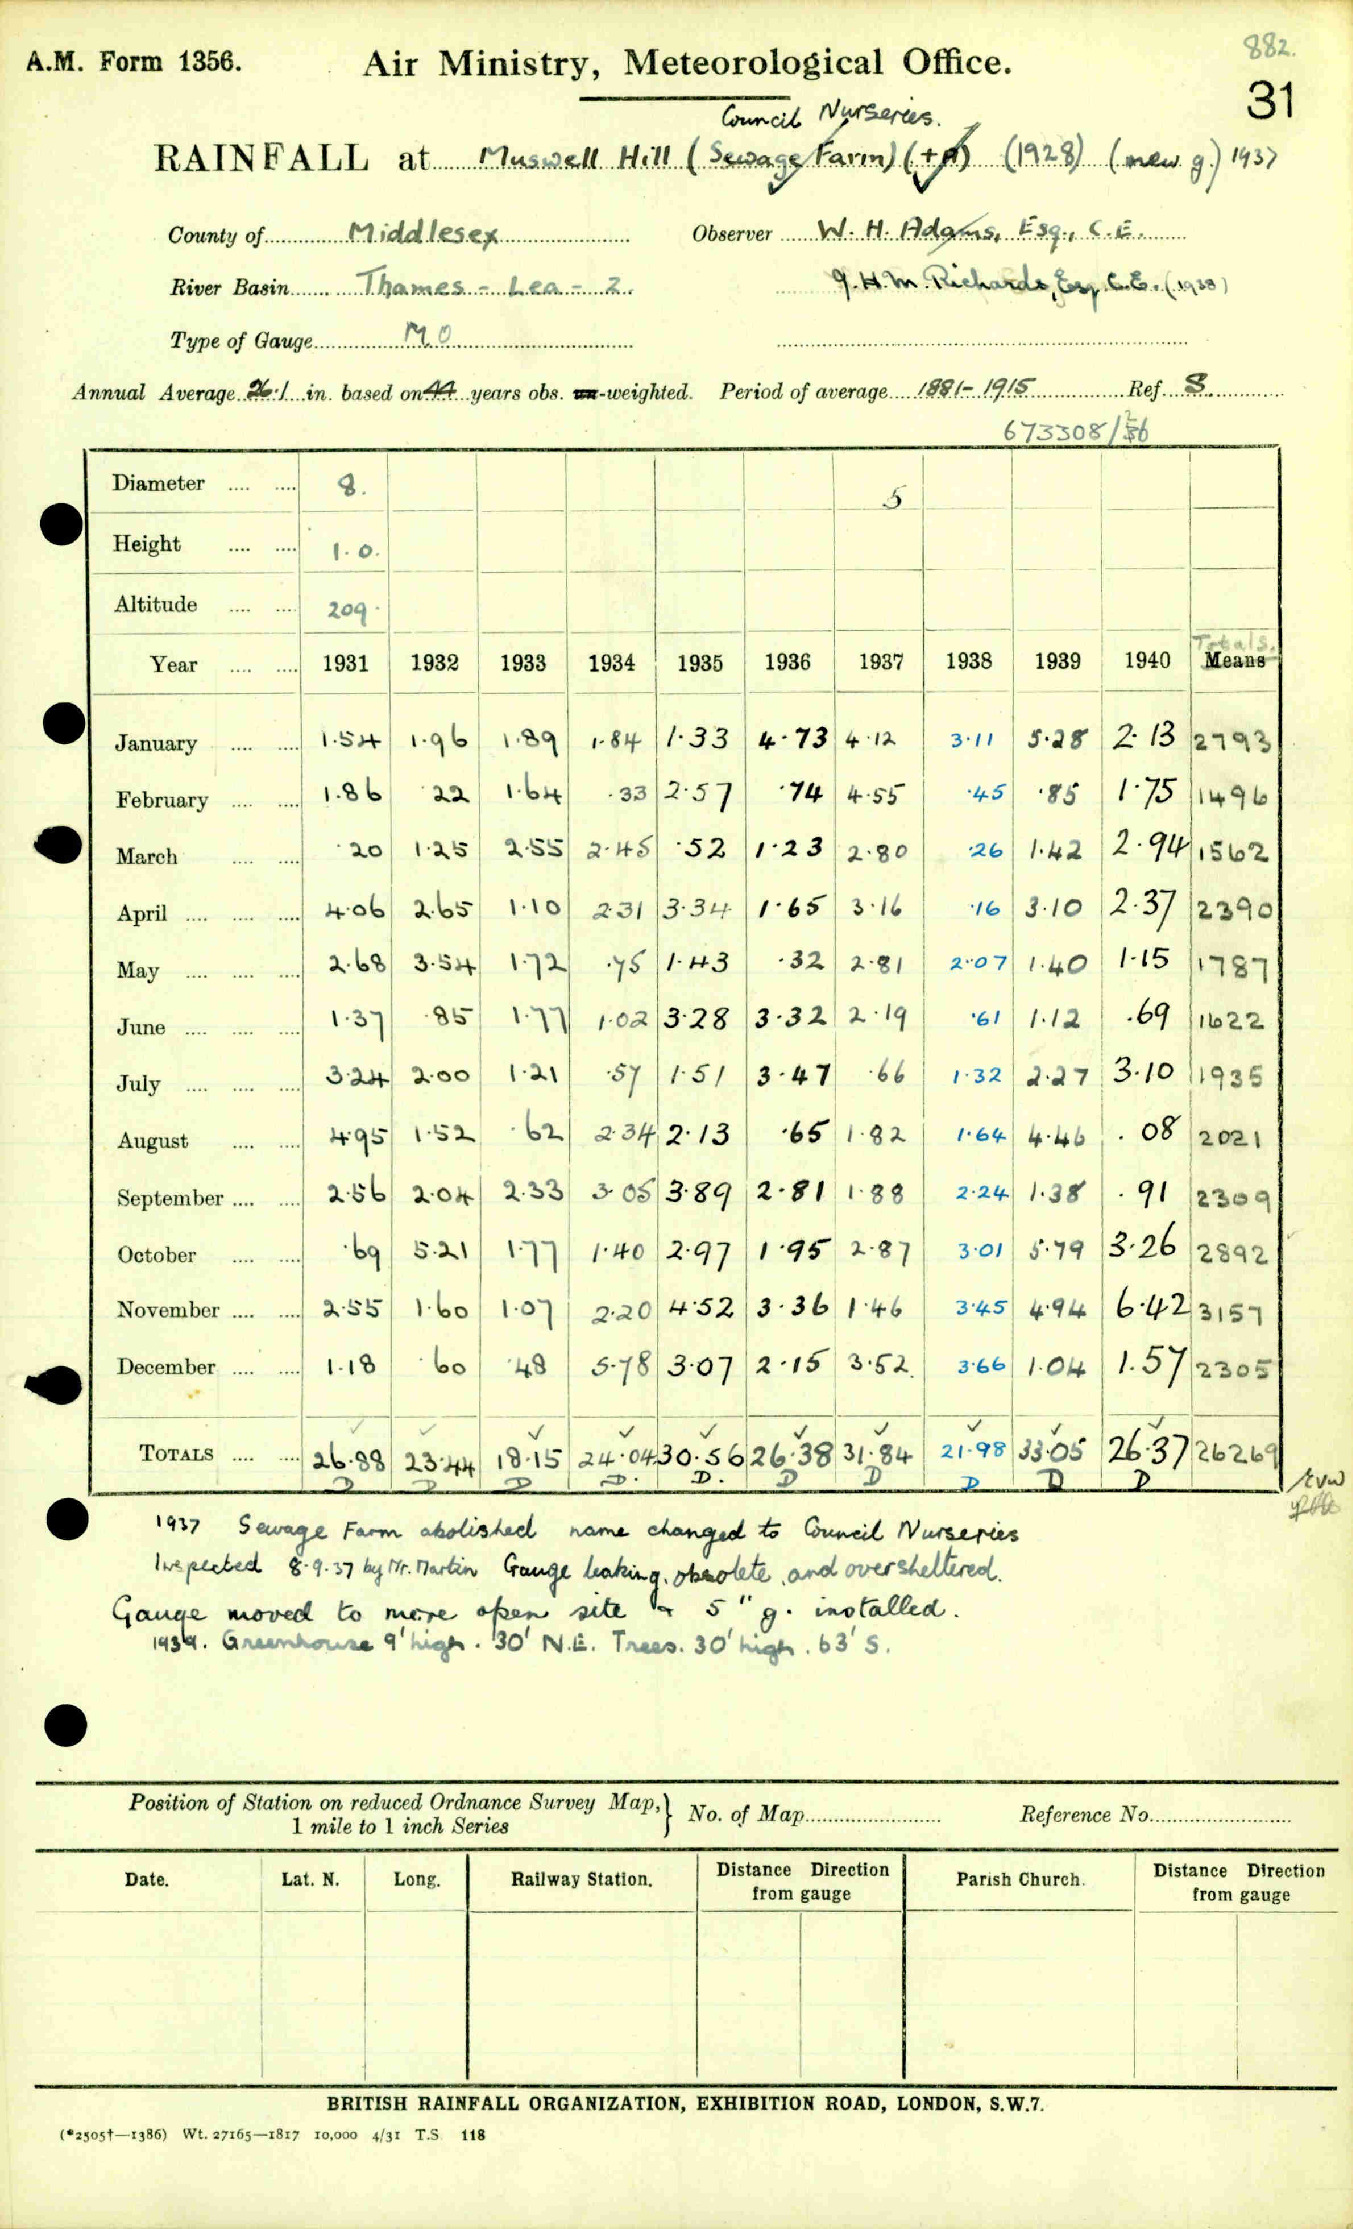 882.
A.M. Form 1356. Air Ministry, Meteorological Office.
31
Council Nurseries.
RAINFALL at Muswell Hill (Sewage Farm) (+A) (1928) (new g.) 1937
County of Middlesex Observer W. H. Adams, Esq., C.E.
River Basin Thames - Lea - 2. J.H.M. Richards, Esq. C.E. (1938)
Type of Gauge MO
Annual Average 26.1 in. based on 44 years obs. un-weighted. Period of average 1881-1915 Ref. S
673308/36
Diameter 8. 5
Height 1.0.
Altitude 209.
Totals.
Year 1931 1932 1933 1934 1935 1936 1937 1938 1939 1940 Means
January 1.54 1.96 1.89 1.84 1.33 4.73 4.12 3.11 5.28 2.13 2793
February 1.86 .22 1.64 .33 2.57 .74 4.55 .45 .85 1.75 1496
March .20 1.25 2.55 2.45 .52 1.23 2.80 .26 1.42 2.94 1562
April 4.06 2.65 1.10 2.31 3.34 1.65 3.16 .16 3.10 2.37 2390
May 2.68 3.54 1.72 .75 1.43 .32 2.81 2.07 1.40 1.15 1787
June 1.37 .85 1.77 1.02 3.28 3.32 2.19 .61 1.12 .69 1622
July 3.24 2.00 1.21 .57 1.51 3.47 .66 1.32 2.27 3.10 1935
August 4.95 1.52 .62 2.34 2.13 .65 1.82 1.64 4.46 .08 2021
September 2.56 2.04 2.33 3.05 3.89 2.81 1.88 2.24 1.38 .91 2309
October .69 5.21 1.77 1.40 2.97 1.95 2.87 3.01 5.79 3.26 2892
November 2.55 1.60 1.07 2.20 4.52 3.36 1.46 3.45 4.94 6.42 3157
December 1.18 .60 .48 5.78 3.07 2.15 3.52 3.66 1.04 1.57 2305
TOTALS 26.88 23.44 18.15 24.04 30.56 26.38 31.84 21.98 33.05 26.37 26269
D D D D. D. D D D D D
1937 Sewage Farm abolished name changed to Council Nurseries
Inspected 8.9.37 by Mr. Martin Gauge leaking, obsolete, and oversheltered.
Gauge moved to more open site & 5" g. installed.
1939. Greenhouse 9' high. 30' N.E. Trees. 30' high. 63' S.
Position of Station on reduced Ordnance Survey Map, 1 mile to 1 inch Series } No. of Map Reference No.
Date. Lat. N. Long. Railway Station. Distance Direction from gauge Parish Church. Distance Direction from gauge
BRITISH RAINFALL ORGANIZATION, EXHIBITION ROAD, LONDON, S.W.7.
(*2505†—1386) Wt. 27165—1817 10,000 4/31 T.S. 118